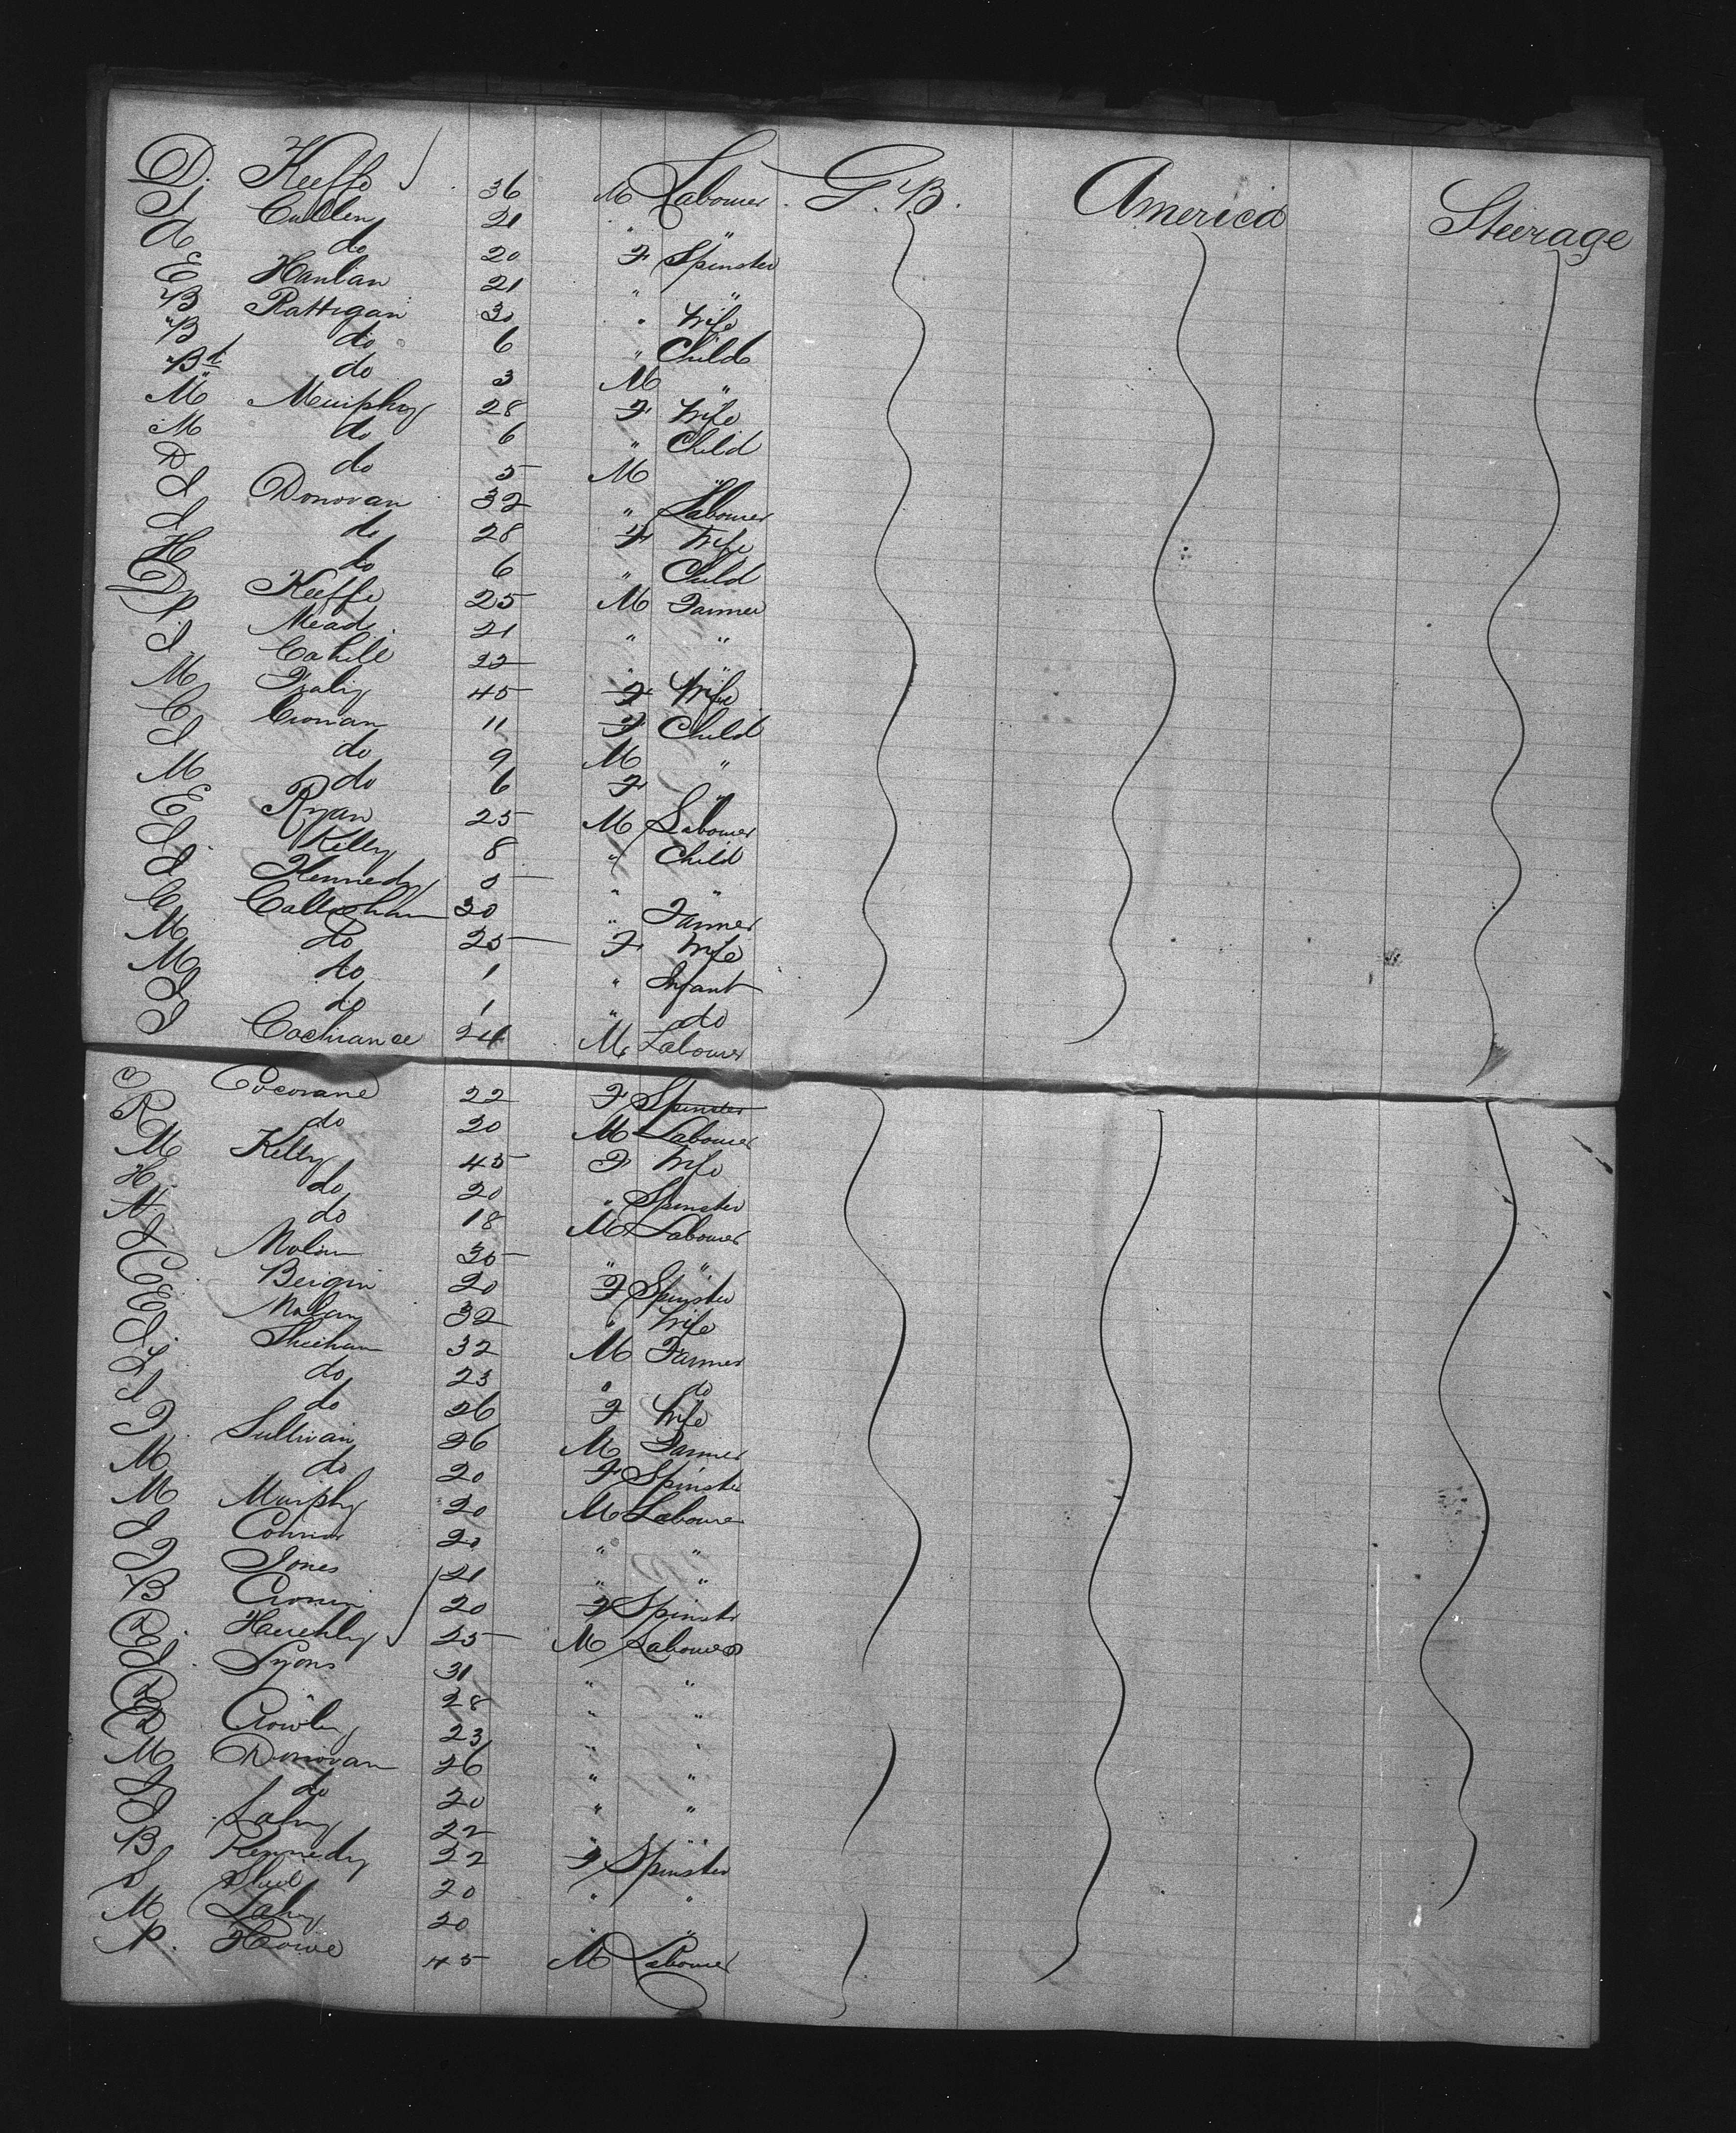 D. Keeffe 36 M Labourer. G.B. America Steerage
J Cullen 21 " "
A do 20 F Spinster
E Hanlan 21 " "
B Rattigan 30 " Wife
B do 6 " Child
Bt do 3 M "
M Murphy 28 F Wife
M do 6 " Child
D do 5 M "
J Donovan 32 " Labourer
J do 28 F Wife
H do 6 " Child
D Keeffe 25 M Farmer
P Meade 21 " "
J. Cahill 22 " "
M 45 F Wife
C Cronan 11 F Child
J do 9 M "
M do 6 F "
E Ryan 25 M Labourer
J. Kelly 8 " Child
J Kennedy 5 " "
C Callaghan 30 " Farmer
M do 25 F Wife
M do 1 " Infant
J do 1 " do
J Cochrance 24 M Labourer
Cocorane 22 F Spinster
R do 20 M Labourer
M Kelly 45 F Wife
H. do 20 " Spinster
N. do 18 M Labourer
J Nolan 35 " "
C Bergin 20 F Spinster
E Nolan 32 " Wife
J. Sheehan 32 M Farmer
do 23 " do
J do 26 F Wife
J. Sullivan 26 M Farmer
M do 20 F Spinster
M Murphy 20 M Labourer
J Connor 20 " "
J Jones 21 " "
B Cronin 20 F Spinster
D. 25 M Labourer
J. Lyons 31 " "
D 28 " "
D Crowley 23 " "
M Donovan 26 " "
J do 20 " "
J Lahy 22 " "
B Kennedy 22 F Spinster
S Shiel 20 " "
M Lahy 20 " "
P. Howe 45 M Labourer